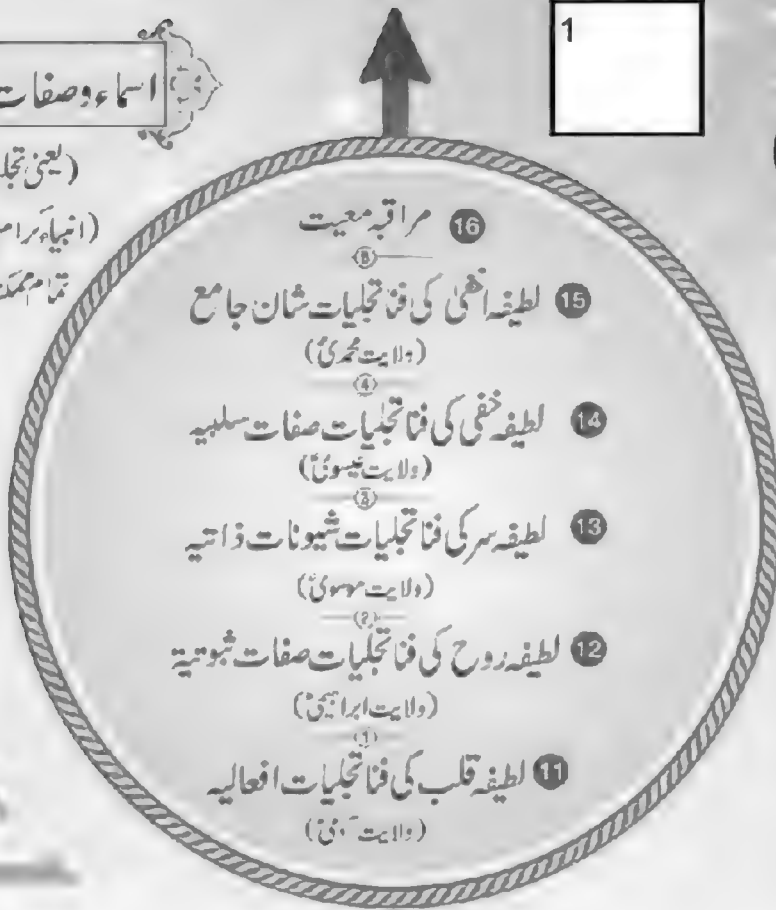 1
اسماء و صفات
(یعنی
(انبیاء
تمام
16 مراقبہ معیت
15 لطیفہ اخفیٰ کی فنا تجلیات شان جامع
(ولایت محمدیؐ)
4
14 لطیفہ خفی کی فنا تجلیات صفات سلبیہ
(ولایت عیسویؑ)
3
13 لطیفہ سر کی فنا تجلیات شیونات ذاتیہ
(ولایت موسویؑ)
(2)
12 لطیفہ روح کی فنا تجلیات صفات ثبوتیہ
(ولایت ابراہیمیؑ)
(1)
11 لطیفہ قلب کی فنا تجلیات افعالیہ
(ولایت آدمیؑ)